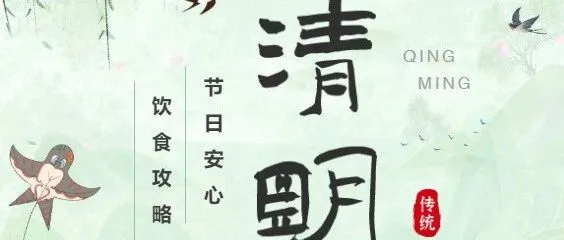 清明
QING
MING
节日安心
饮食攻略
传统